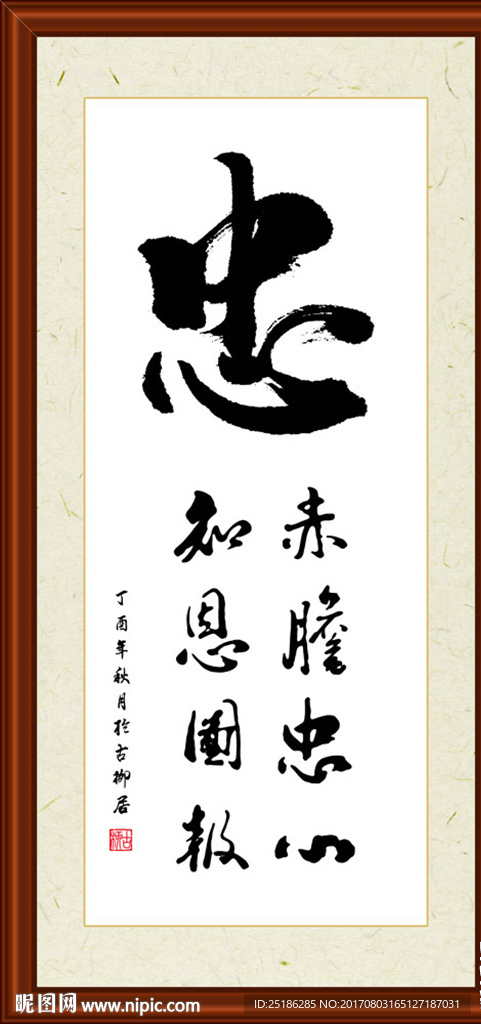 忠
赤膽忠心
知恩圖報
丁酉年秋月於古柳居
昵图网 www.nipic.com
ID:25186285 NO:20170803165127187031